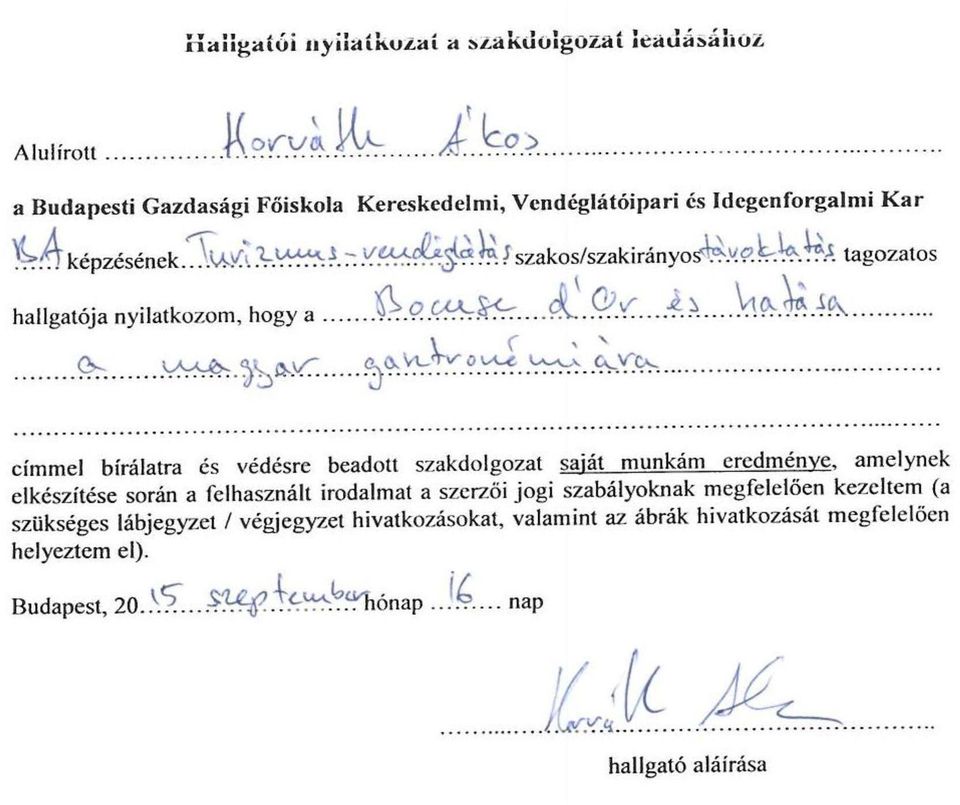 Hallgatói nyilatkozat a szakdolgozat leadásához
Alulírott Horváth Ákos
a Budapesti Gazdasági Főiskola Kereskedelmi, Vendéglátóipari és Idegenforgalmi Kar
BA képzésének Turizmus-vendéglátás szakos/szakirányos távoktatás tagozatos
hallgatója nyilatkozom, hogy a Bocuse d'Or és hatása
a magyar gasztronómiára
címmel bírálatra és védésre beadott szakdolgozat saját munkám eredménye, amelynek
elkészítése során a felhasznált irodalmat a szerzői jogi szabályoknak megfelelően kezeltem (a
szükséges lábjegyzet / végjegyzet hivatkozásokat, valamint az ábrák hivatkozását megfelelően
helyeztem el).
Budapest, 2015 szeptember hónap 16 nap
Horváth Ákos
hallgató aláírása